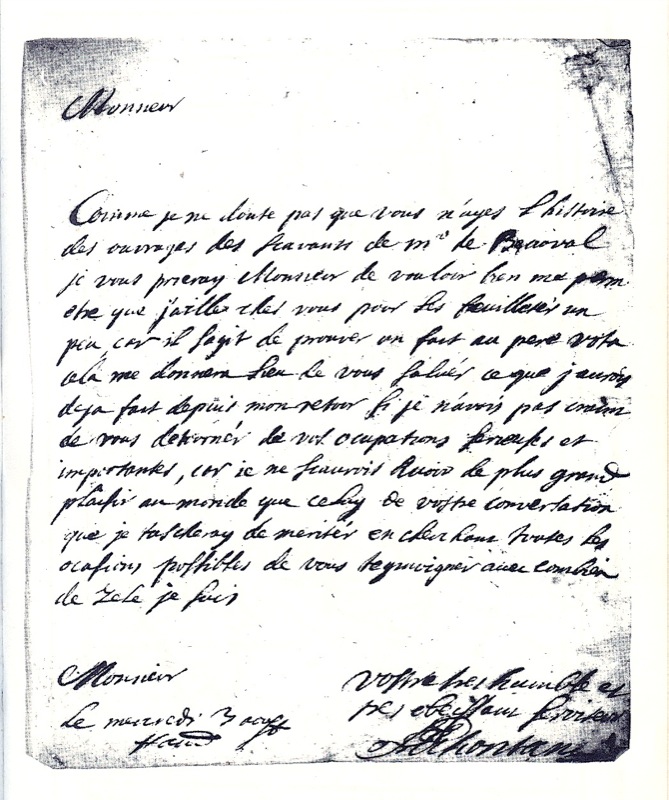 Monsieur
Comme je ne doute pas que vous n'ayes l'histoire
des ouvrages des scavants de mr de Beauval
je vous prieray Monsieur de vouloir bien me perm
etre que j'aille ches vous pour les feuilleter un
peu car il s'agit de prouver un fait au pere
cela me donnera lieu de vous saluer ce que j'aurois
deja fait depuis mon retour si je n'avois pas craint
de vous detourner de vos ocupations serieuses et
importantes, car je ne scaurois avoir de plus grand
plaisir au monde que celuy de vostre conversation
que je tascheray de meriter en cherchant toutes les
ocasions possibles de vous temoigner avec combien
de Zele je suis
Monsieur
vostre tres humble et
tres obeissant serviteur
Le mercredi 3 aoust
Lahontan